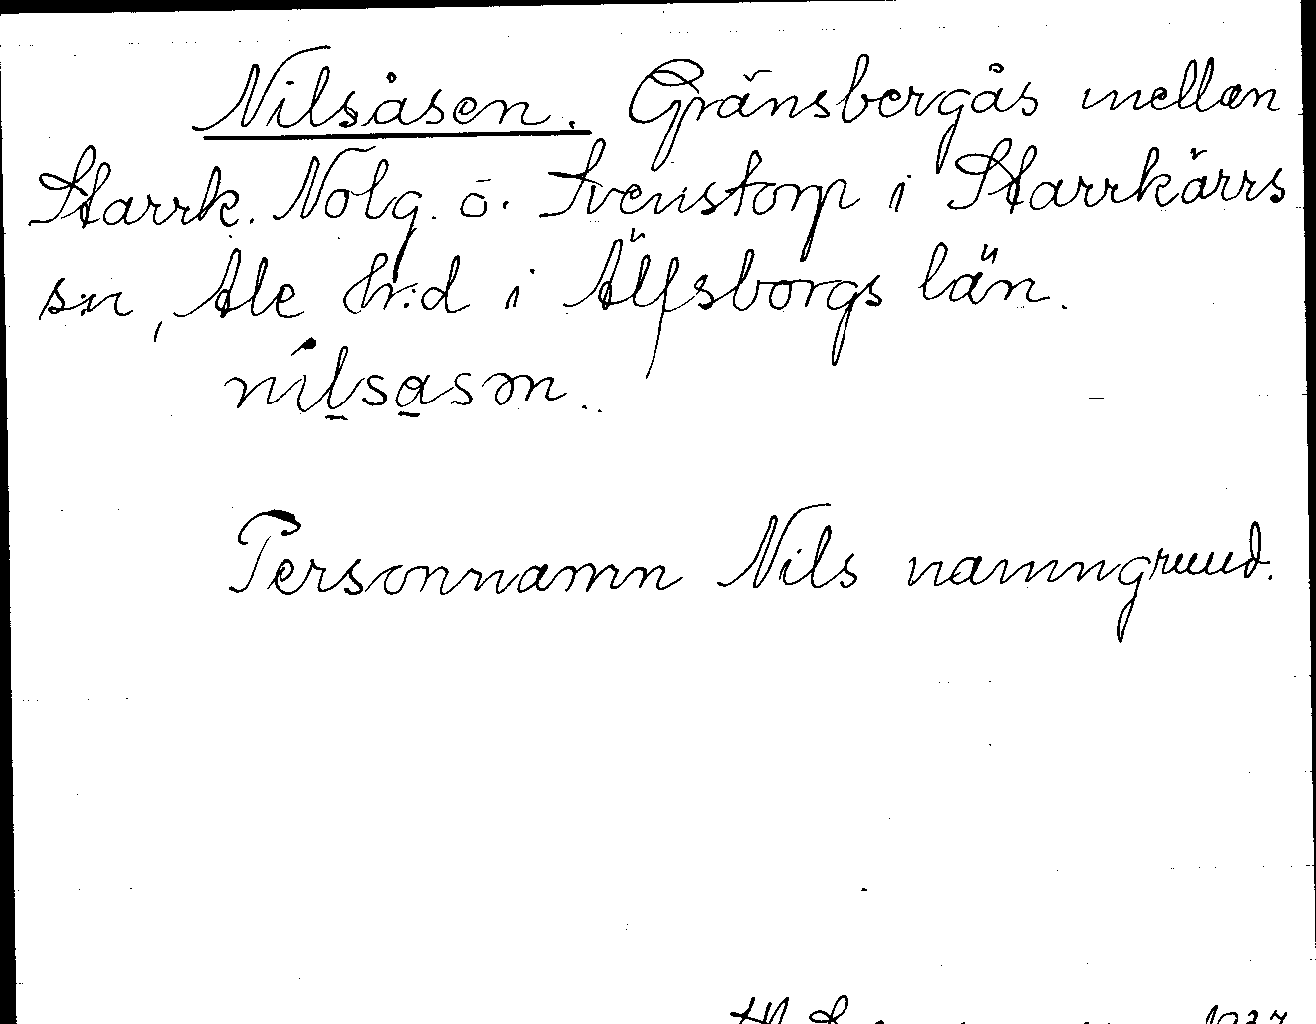 Nilsåsen. Gränsbergås mellan
Starrk. Nolg. o. Svenstorp i Starrkärrs
sn, Ale hr:d i Älfsborgs län.
nilsasən.
Personnamn Nils namngrund.